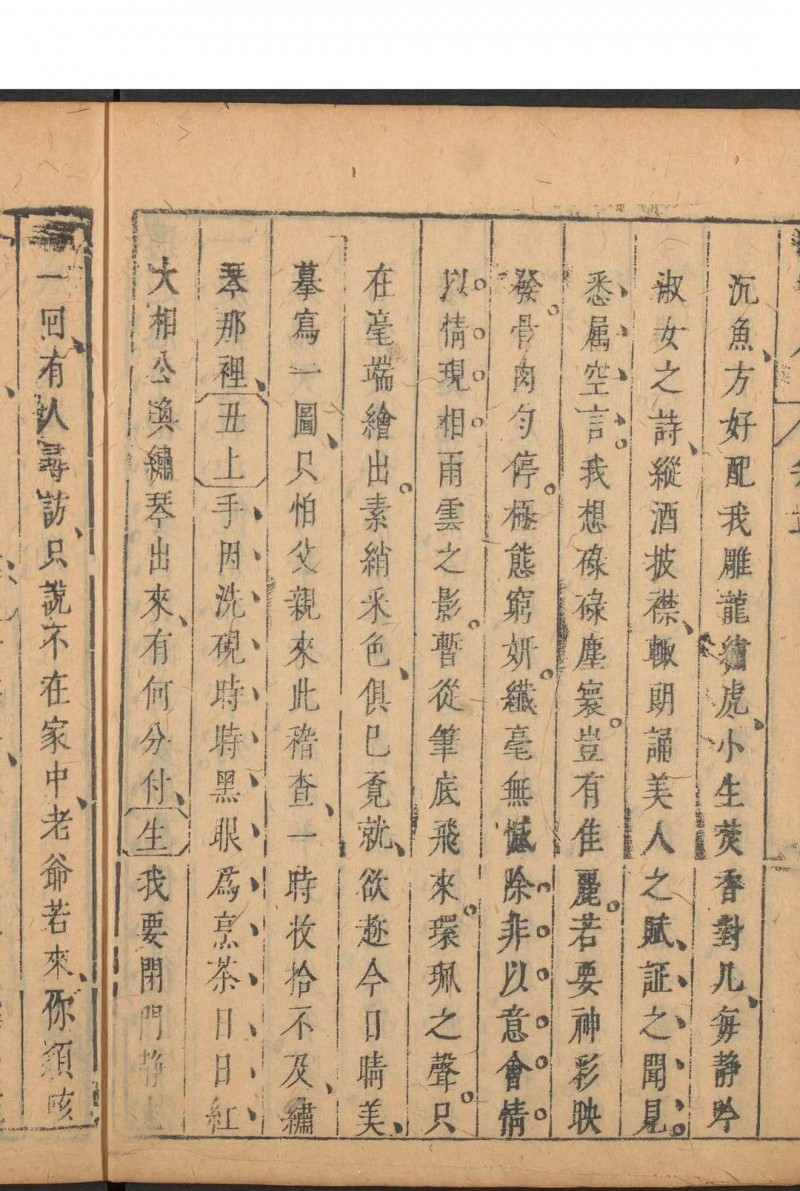 沉魚方好配我雕龍繡虎小生焚香對几每靜吟
淑女之詩縱酒披襟輙朗誦美人之賦証之聞見
悉属空言我想碌碌塵寰豈有佳麗若要神彩映
發骨肉勻停極態窮妍纖毫無憾除非以意會情
以情現相雨雲之影暫從筆底飛來環珮之聲只
在毫端繪出素綃采色俱已竟就欲趂今日晴美
摹寫一圖只怕父親來此稽查一時收拾不及繡
琴那裡丑上手因洗硯時時黑眼爲烹茶日日紅
大相公奐繡琴出來有何分付生我要閉門靜
一回有人尋訪只說不在家中老爺若來你須咳